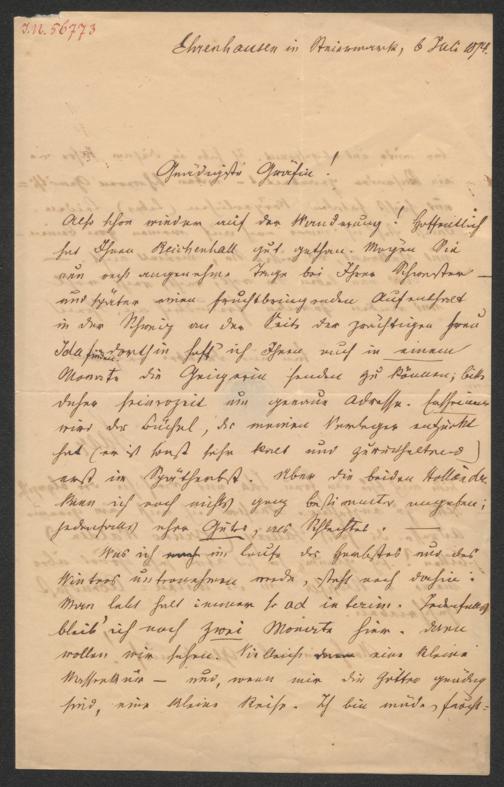 I.N. 56773
Ehrenhausen in Steiermark, 6 Juli 1874.
Gnädigste Gräfin!
Also schon wieder auf der Wanderung! Hoffentlich
hat Ihnen Reichenhall gut gethan. Mögen Sie
nun recht angenehme Tage bei Ihrer Schwester —
und später einen fruchtbringenden Aufenthalt
in der Schweiz an der Seite der prächtigen Frau
Ida finden. Dorthin hoff' ich Ihnen auch in einem
Monate die Geigerin senden zu können; bitte
daher seinerzeit um genaue Adresse. Erscheinen
wird das Büchel, das meinen Verleger entzückt
hat (er ist sonst sehr kalt und zurückhaltend)
erst im Spätherbst. Über die beiden Holländer
kann ich noch nichts ganz bestimmtes angeben;
jedenfalls eher Gutes, als Schlechtes. —
Was ich im Laufe des Herbstes und des
Winters unternehmen werde, steht noch dahin.
Man lebt halt immer so ad interim. Jedenfalls
bleib' ich noch zwei Monate hier. Dann
wollen wir sehen. Vielleicht eine kleine
Wassercur — und, wenn mir die Götter gnädig
sind, eine kleine Reise. Ich bin müde,